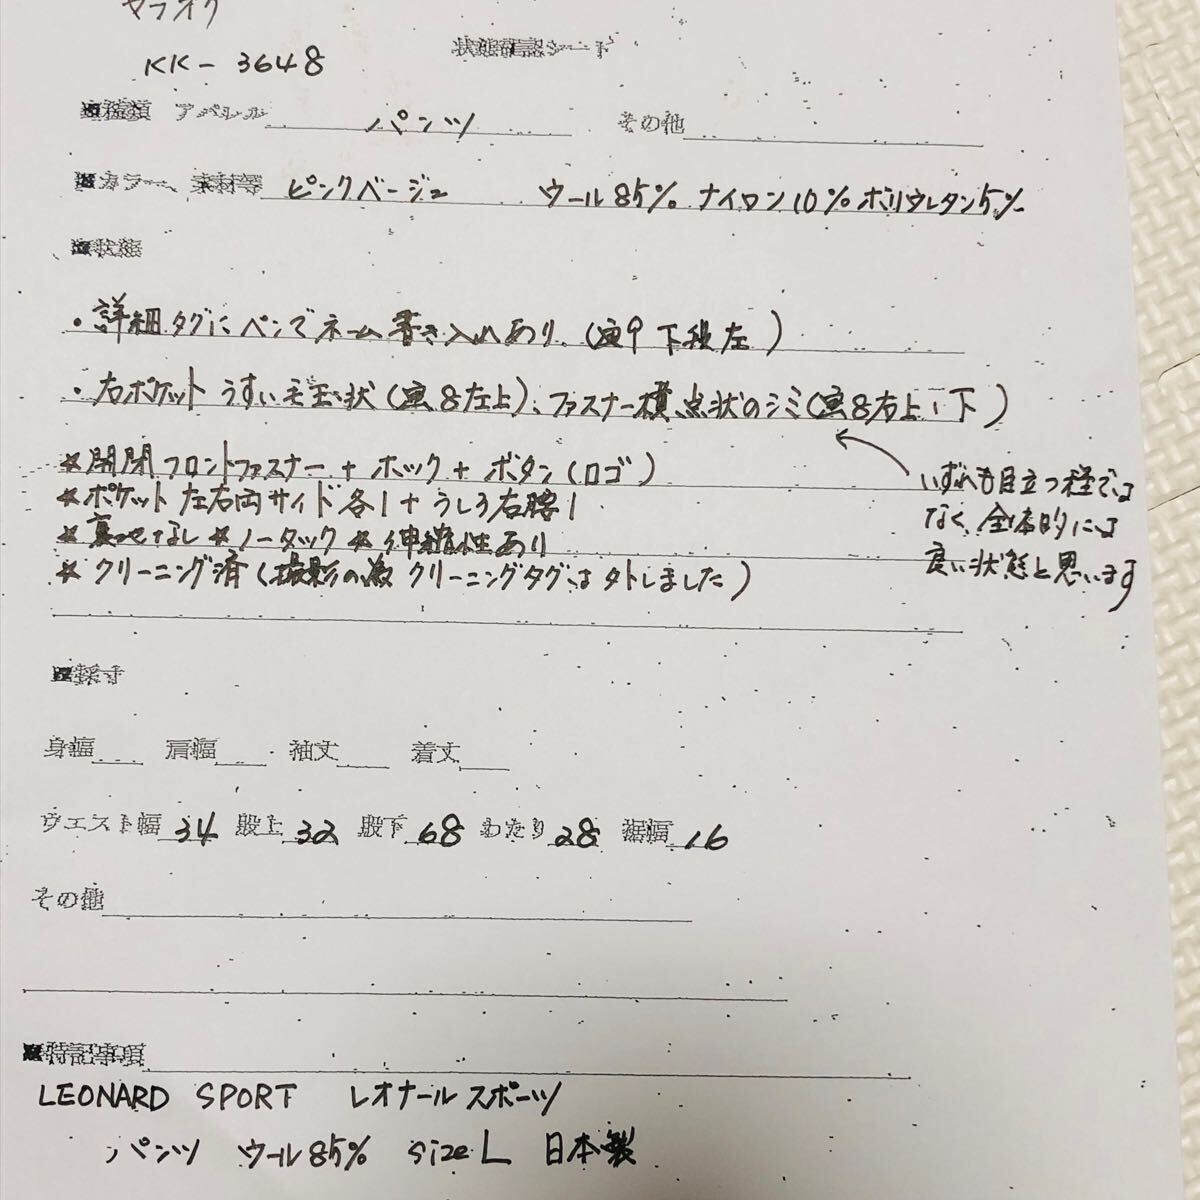 ヤフオク
KK-3648
状態確認シート
■種類 アパレル パンツ その他
■カラー、素材等 ピンクベージュ ウール85% ナイロン10% ポリウレタン5%
■状態
・詳細タグにペンでネーム書き入れあり。(画9 下段左)
・右ポケット うすい毛玉状(画8左上)、ファスナー横 点状のシミ(画8右上、下)
いずれも目立つ程では
なく、全体的には
良い状態と思います
☆開閉フロントファスナー+ホック+ボタン(ロゴ)
☆ポケット 左右両サイド各1+うしろ右腰1
☆裏地なし ☆ノータック ☆伸縮性あり
☆クリーニング済(撮影の為 クリーニングタグは外しました)
■採寸
身幅 肩幅 袖丈 着丈
ウエスト幅 34 股上 32 股下 68 わたり 28 裾幅 16
その他
■特記事項
LEONARD SPORT レオナールスポーツ
パンツ ウール85% size L 日本製